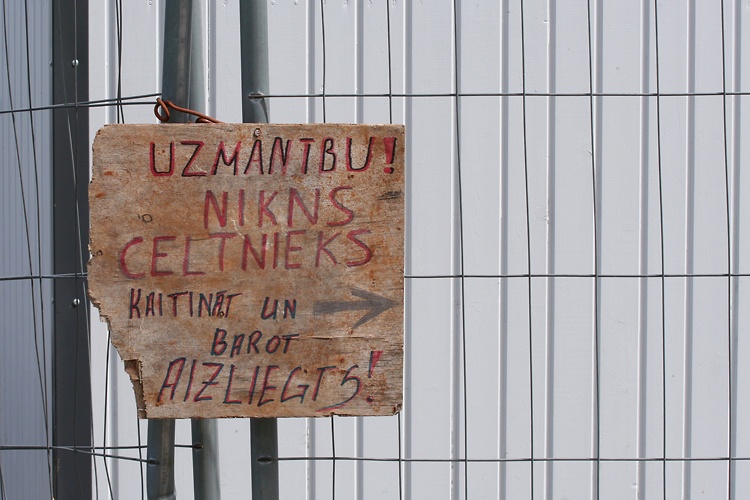 UZMĀNĪBU!
NIKNS
CELTNIEKS
KAITINĀT UN
BAROT
AIZLIEGTS!